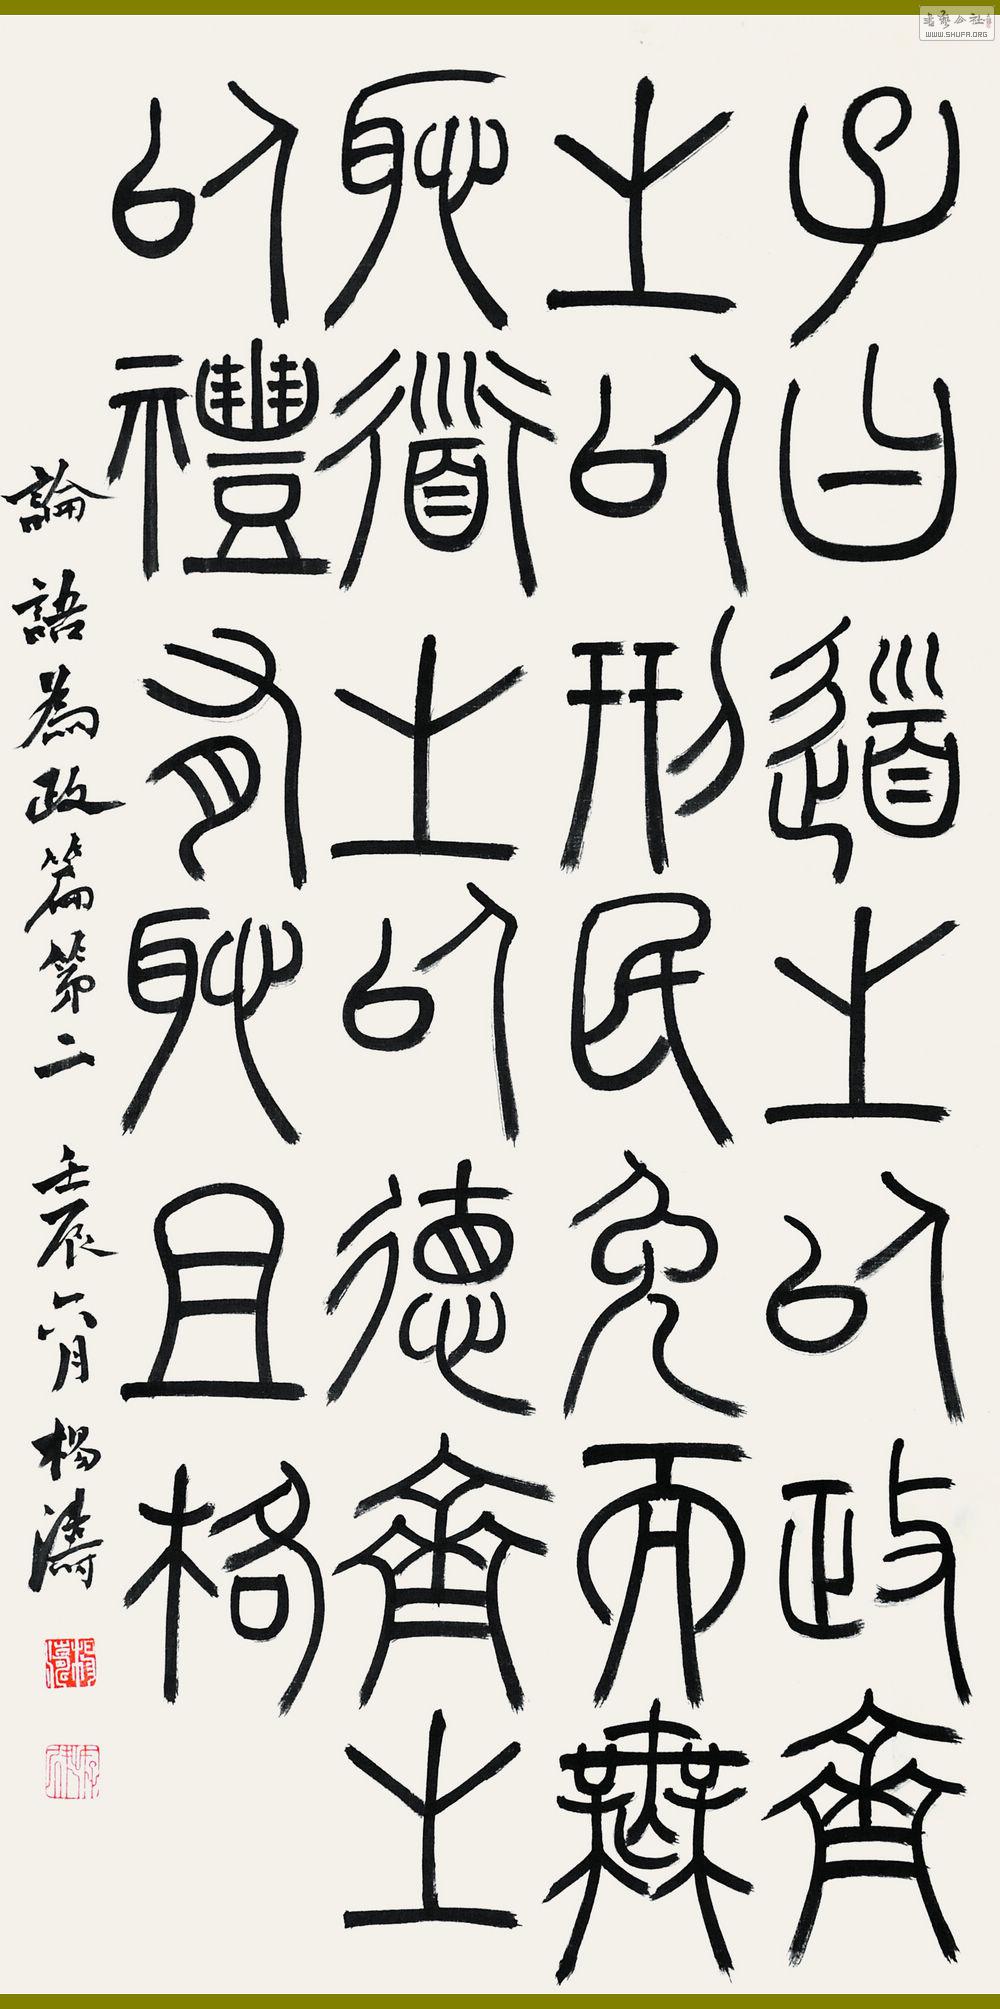 子曰道之以政齊
之以刑民免而無
恥道之以德齊之
以禮有恥且格
論語為政篇第二 壬辰六月 楊濤
書藝公社
WWW.SHUFA.ORG